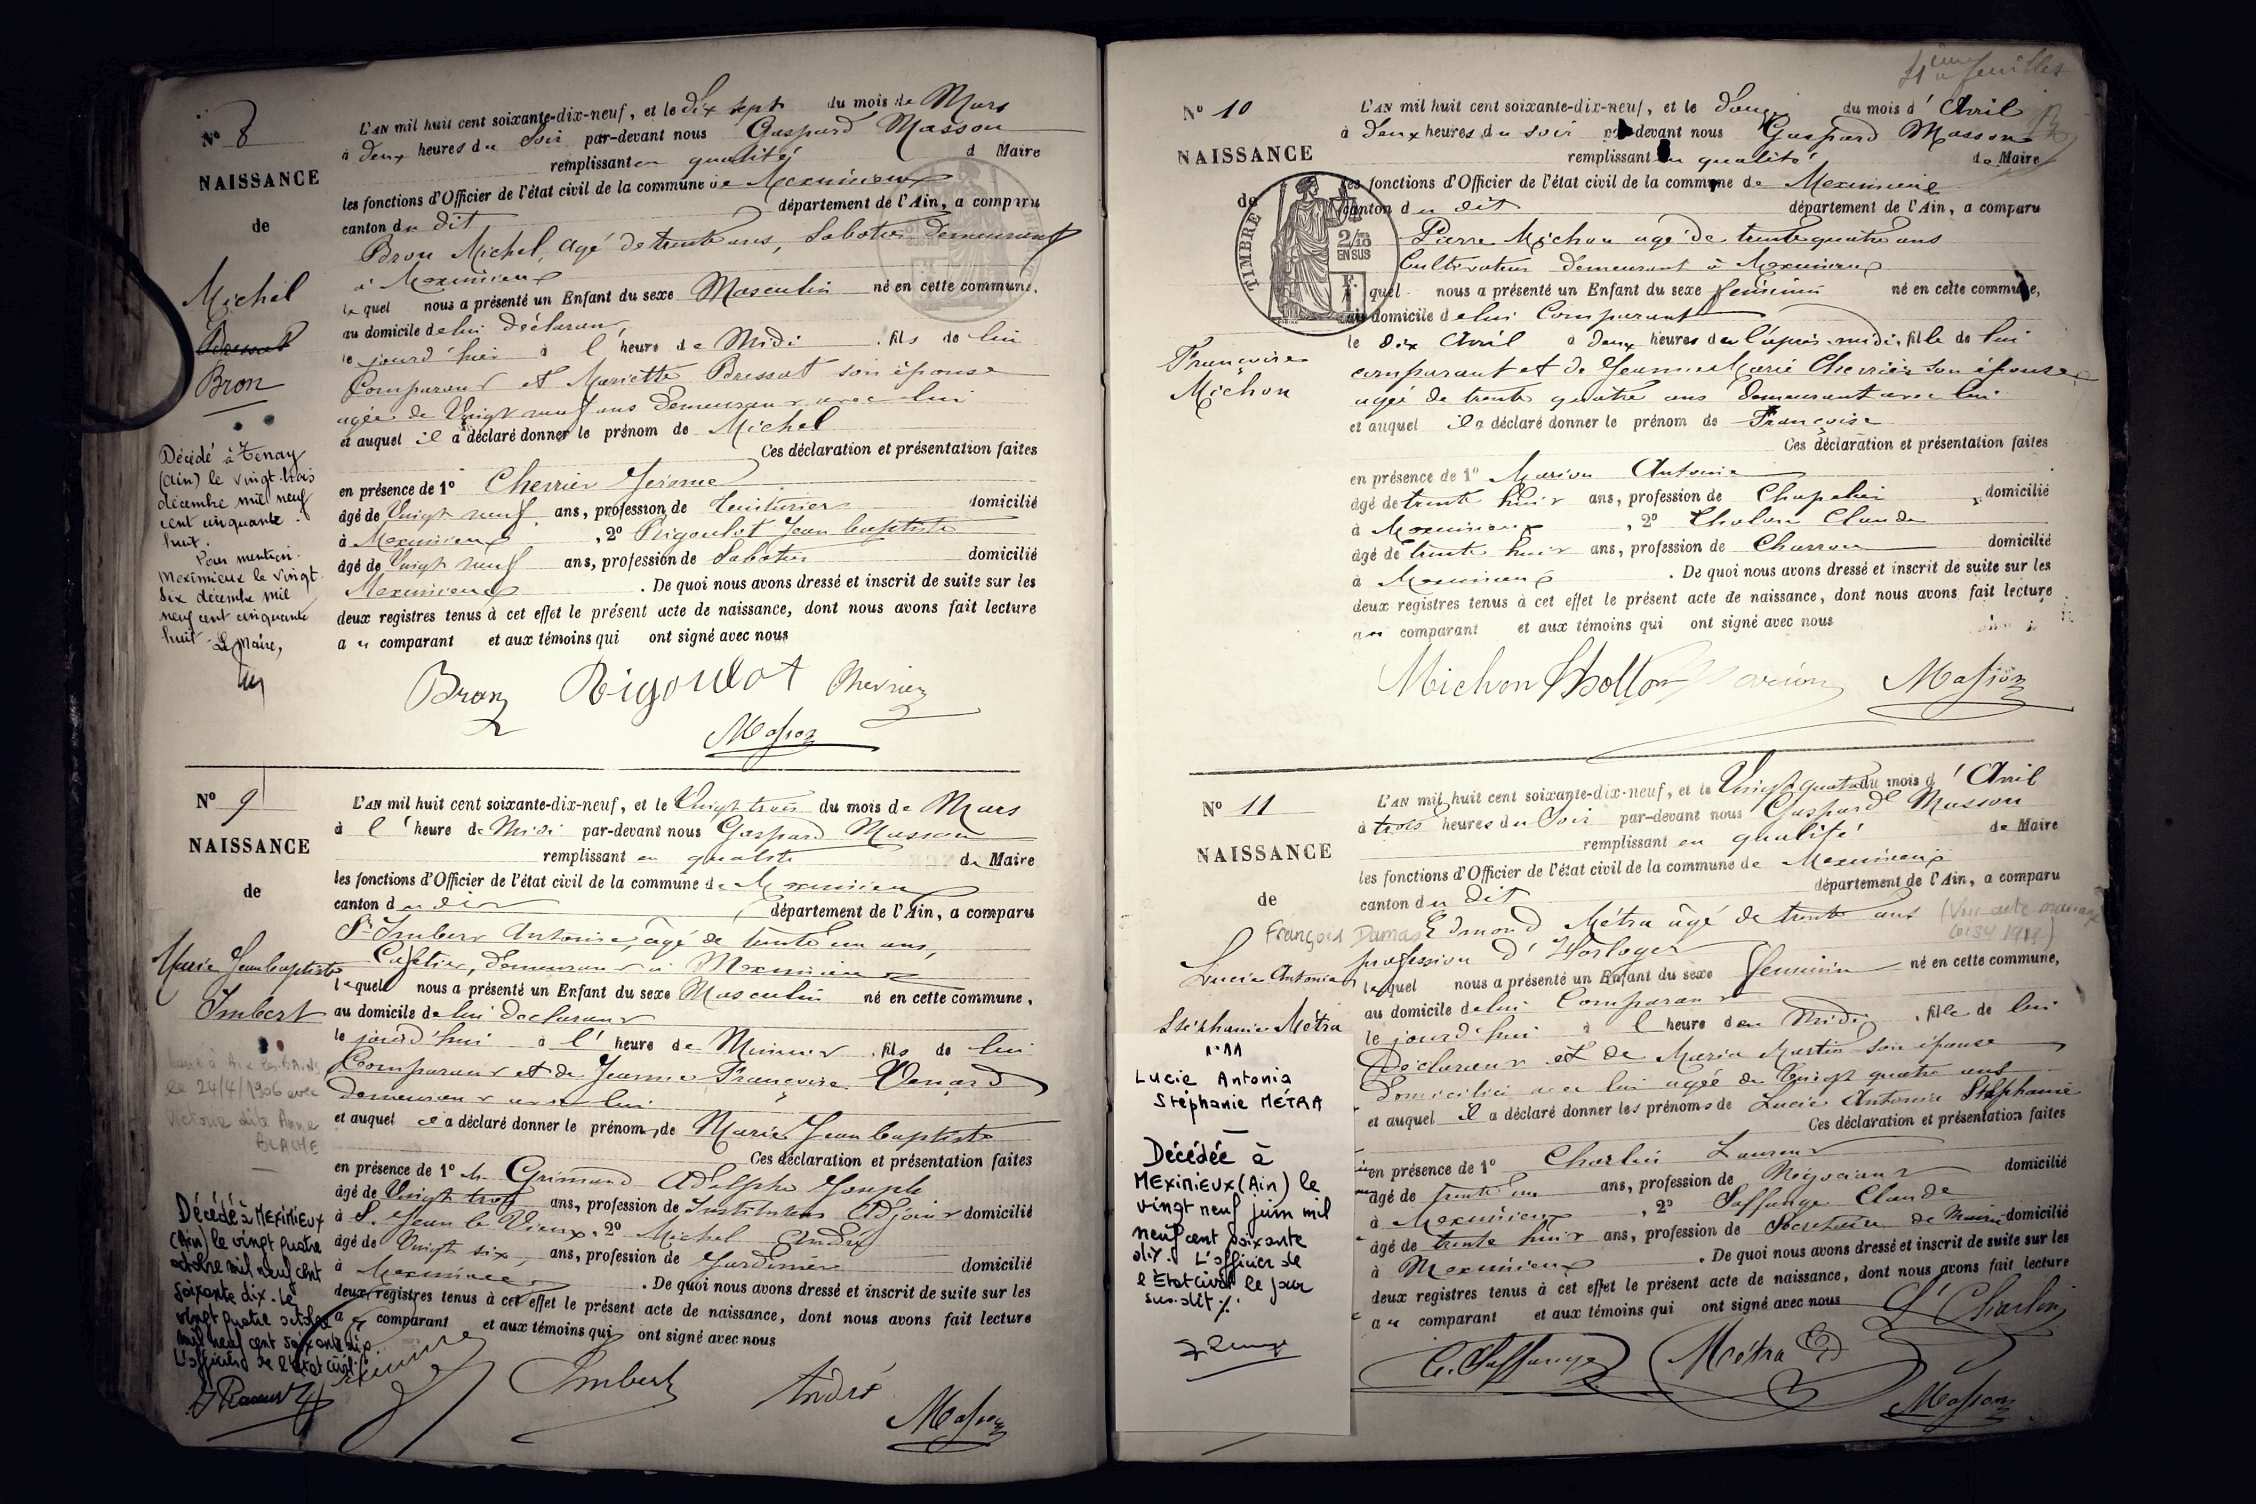 N° 8
NAISSANCE
de
Michel
Bressat
Bron
Décédé à Tenay
(Ain) le vingt-trois
décembre mil neuf
cent cinquante
huit.
Pour mention.
Meximieux le vingt
six décembre mil
neuf cent cinquante
huit. Le Maire,
L'AN mil huit cent soixante-dix-neuf, et le Dix sept du mois de Mars
à deux heures du Soir par-devant nous Gaspard Masson
remplissant en qualité d Maire
les fonctions d'Officier de l'état civil de la commune de Meximieux
canton du dit département de l'Ain, a comparu
Bron Michel, agé de trente ans, Sabotier demeurant
à Meximieux
lequel nous a présenté un Enfant du sexe Masculin né en cette commune,
au domicile de lui déclarant
le jourd'hui à l' heure de Midi . fils de lui
Comparant et Mariette Bressat son épouse
agée de Vingt neuf ans demeurant avec lui
et auquel il a déclaré donner le prénom de Michel
Ces déclaration et présentation faites
en présence de 1° Cherrier Jérome
âgé de Vingt neuf ans, profession de Teinturier domicilié
à Meximieux , 2° Rigoulot Jean Baptiste
âgé de Vingt neuf ans, profession de Sabotier domicilié
Meximieux . De quoi nous avons dressé et inscrit de suite sur les
deux registres tenus à cet effet le présent acte de naissance, dont nous avons fait lecture
au comparant et aux témoins qui ont signé avec nous
Bron Rigoulot Cherrier
Masson
N° 9
NAISSANCE
de
Marie Jean baptiste
Imbert
le 24/4/1906 avec
Victoire dite Anne
BLACHE
Décédé à MEXIMIEUX
(Ain) le vingt quatre
octobre mil neuf cent
soixante dix. Le
vingt quatre octobre
mil neuf cent soixante dix.
L'officier de l'état civil.
L'AN mil huit cent soixante-dix-neuf, et le Vingt trois du mois de Mars
à l' heure de Midi par-devant nous Gaspard Masson
remplissant en qualité de Maire
les fonctions d'Officier de l'état civil de la commune de Meximieux
canton du dit département de l'Ain, a comparu
Sr Imbert Antoine, âgé de trente un ans,
Cafetier, demeurant à Meximieux
lequel nous a présenté un Enfant du sexe Masculin né en cette commune,
au domicile de lui déclarant
le jourd'hui à l' heure de Minuit . fils de lui
Comparant et de Jeanne Françoise Venard
demeurant avec lui
et auquel il a déclaré donner le prénom de Marie Jean baptiste
Ces déclaration et présentation faites
en présence de 1° Mr Grimaud Adolphe Joseph
âgé de Vingt trois ans, profession de Instituteur Adjoint domicilié
à St Jean le Vieux, 2° Michel André
âgé de Vingt six, ans, profession de Jardinier domicilié
à Meximieux . De quoi nous avons dressé et inscrit de suite sur les
deux registres tenus à cet effet le présent acte de naissance, dont nous avons fait lecture
au comparant et aux témoins qui ont signé avec nous
Imbert André
Masson
feuilles
N° 10
NAISSANCE
de
Françoise
Michon
TIMBRE
2/10
EN SUS
L'AN mil huit cent soixante-dix-neuf, et le douze du mois d' Avril
à deux heures du soir par-devant nous Gaspard Masson
remplissant en qualité de Maire
les fonctions d'Officier de l'état civil de la commune de Meximieux
canton du dit département de l'Ain, a comparu
Pierre Michon agé de trente quatre ans
Cultivateur demeurant à Meximieux
lequel nous a présenté un Enfant du sexe féminin né en cette commune,
au domicile de lui Comparant
le dix Avril à deux heures de l'après-midi, fille de lui
comparant et de Jeanne Marie Cherrier son épouse
agée de trente quatre ans demeurant avec lui
et auquel il a déclaré donner le prénom de Françoise
Ces déclaration et présentation faites
en présence de 1° Marion Antoine
âgé de trente huit ans, profession de Chapelier domicilié
à Meximieux , 2° Claude
âgé de trente huit ans, profession de Charron domicilié
à Meximieux . De quoi nous avons dressé et inscrit de suite sur les
deux registres tenus à cet effet le présent acte de naissance, dont nous avons fait lecture
au comparant et aux témoins qui ont signé avec nous
Michon Marion Masson
N° 11
NAISSANCE
de
Lucie Antonia
Stéphanie Métra
N° 11
Lucie Antonia
Stéphanie MÉTRA
Décédée à
MEXIMIEUX (Ain) le
vingt neuf juin mil
neuf cent soixante
dix. L'officier de
l'Etat civil le jour
sus-dit %.
L'AN mil huit cent soixante-dix-neuf, et le Vingt quatre du mois d' Avril
à trois heures du Soir par-devant nous Gaspard Masson
remplissant en qualité de Maire
les fonctions d'Officier de l'état civil de la commune de Meximieux
canton du dit département de l'Ain, a comparu
François Damas Edmond Métra âgé de trente ans (Voir acte mariage
profession d'Horloger
lequel nous a présenté un Enfant du sexe féminin né en cette commune,
au domicile de lui Comparant
le jourd'hui à l heure de Midi . fille de lui
Déclarant et de Maria Martin son épouse
Domiciliée avec lui agée de Vingt quatre ans
et auquel il a déclaré donner les prénoms de Lucie Antonia Stéphanie
Ces déclaration et présentation faites
en présence de 1° Charlin Laurent
âgé de trente un ans, profession de Négociant domicilié
à Meximieux , 2° Saffange Claude
âgé de trente huit ans, profession de Secrétaire de Mairie domicilié
à Meximieux . De quoi nous avons dressé et inscrit de suite sur les
deux registres tenus à cet effet le présent acte de naissance, dont nous avons fait lecture
au comparant et aux témoins qui ont signé avec nous L Charlin
C. Saffange Métra Ed
Masson